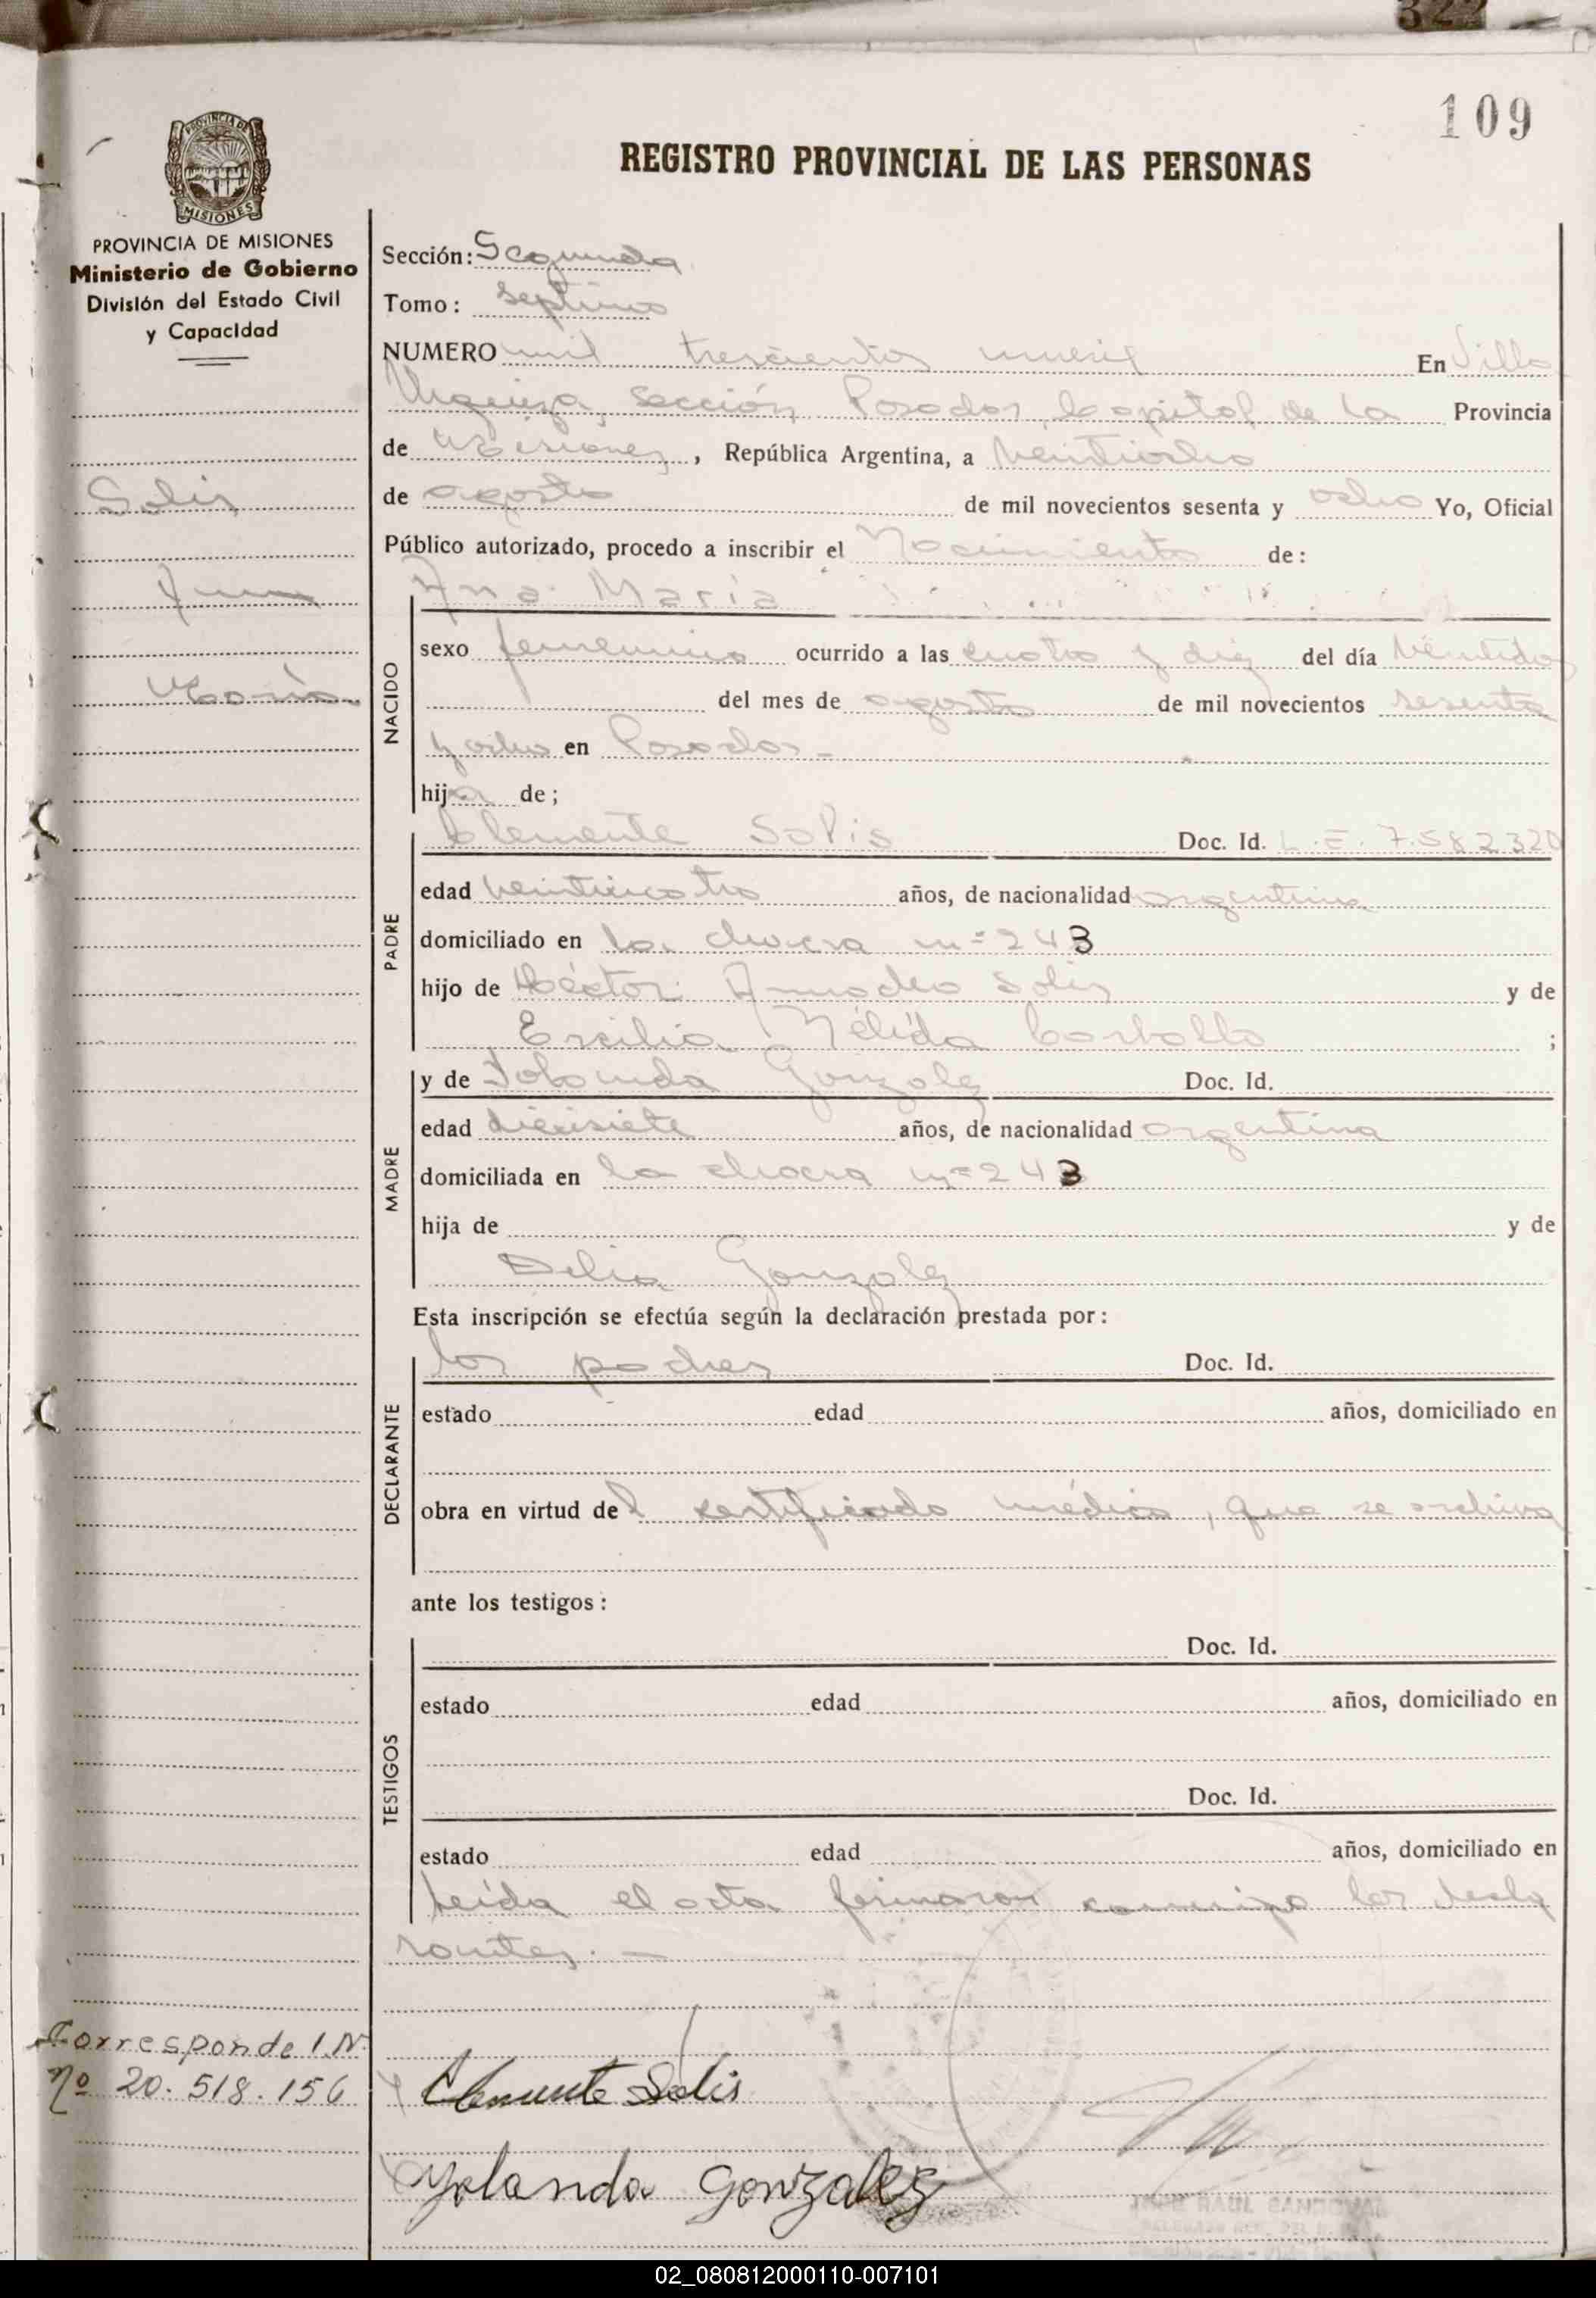 322
109
PROVINCIA DE
MISIONES
REGISTRO PROVINCIAL DE LAS PERSONAS
PROVINCIA DE MISIONES
Ministerio de Gobierno
División del Estado Civil
y Capacidad
Solis
Ana
María
Sección: Segunda
Tomo: septimo
NUMERO mil trescientos nueve En Villa
Urquiza, Sección Posadas, Capital de la Provincia
de Misiones, República Argentina, a veintiocho
de agosto de mil novecientos sesenta y ocho Yo, Oficial
Público autorizado, procedo a inscribir el Nacimiento de:
NACIDO
Ana María
sexo femenino ocurrido a las cuatro y diez del día veintidos
del mes de agosto de mil novecientos sesenta
y ocho en Posadas.-
hija de;
PADRE
Clemente Solis Doc. Id. L.E. 7.582320
edad veinticuatro años, de nacionalidad argentina
domiciliado en la chacra nº 243
hijo de Héctor Amadeo Solis y de
Ercilia Nélida Carballo ;
MADRE
y de Yolanda Gonzalez Doc. Id.
edad diecisiete años, de nacionalidad argentina
domiciliada en la chacra nº 243
hija de y de
Delia Gonzalez
Esta inscripción se efectúa según la declaración prestada por:
DECLARANTE
los padres Doc. Id.
estado edad años, domiciliado en
obra en virtud del certificado médico, que se archiva
ante los testigos:
TESTIGOS
Doc. Id.
estado edad años, domiciliado en
Doc. Id.
estado edad años, domiciliado en
Leída el acta firmaron conmigo los decla
rantes.-
Corresponde I.N.
nº 20.518.156
Clemente Solis
Yolanda Gonzalez
RAUL SANDOVAL
02_080812000110-007101